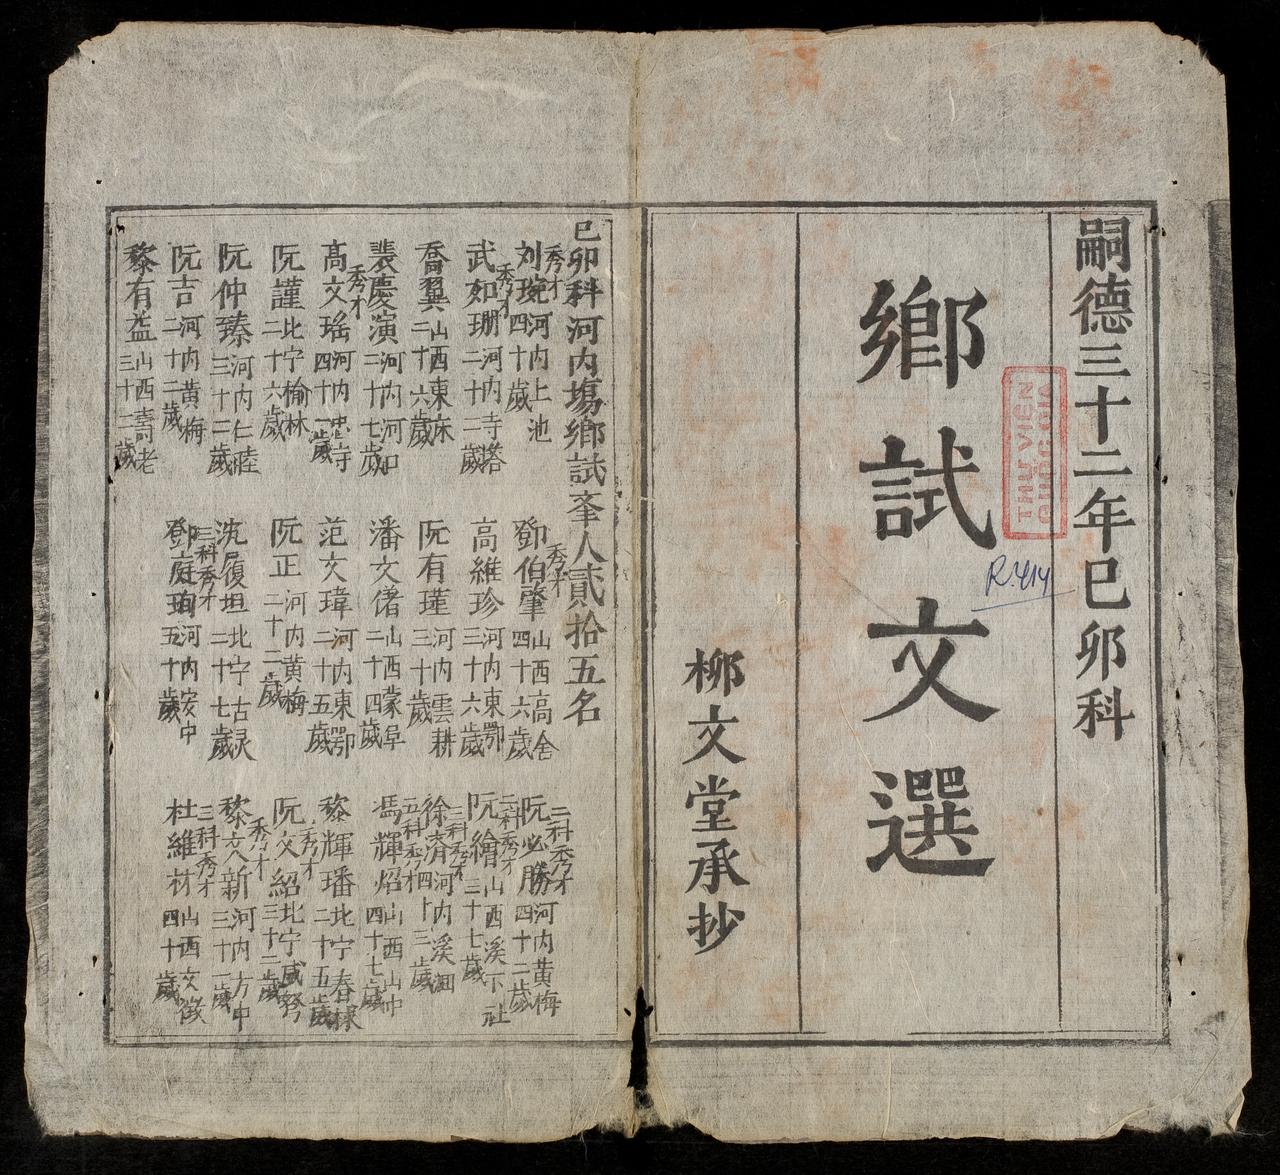 嗣德三十二年己卯科
鄉試文選
柳文堂承抄
THƯ VIỆN
QUỐC GIA
R.414
己卯科河內場鄉試舉人貳拾五名
秀才
刘琬 河內上池 四十歲
秀才
鄧伯肇 山西高舍 四十六歲
二科秀才
阮必勝 河內黃梅 四十二歲
秀才
武如珊 河內寺塔 二十二歲
高維珍 河內東鄂 三十六歲
二科秀才
阮繪 山西溪下社 三十七歲
喬翼 山西東床 二十六歲
阮有瑾 河內雲耕 三十歲
三科秀才
徐濟 河內溪洄 四十三歲
裴慶演 河內河口 二十七歲
潘文偖 山西蒙阜 二十四歲
五科秀才
馮輝炤 山西山中 四十七歲
秀才
高文瑤 河內 四十一歲
范文瑋 河內東鄂 二十五歲
黎輝璠 北宁春棣 二十五歲
阮謹 北宁榆林 二十六歲
阮正 河內黃梅 二十二歲
秀才
阮文紹 北宁咸弩 三十二歲
阮仲臻 河內仁睦 三十二歲
沈履坦 北宁古灵 二十七歲
秀才
黎文新 河內方中 三十一歲
阮吉 河內黃梅 二十二歲
三科秀才
鄧庭珣 河內安中 五十歲
三科秀才
杜維材 山西文徵 四十歲
黎有益 山西壽老 三十二歲